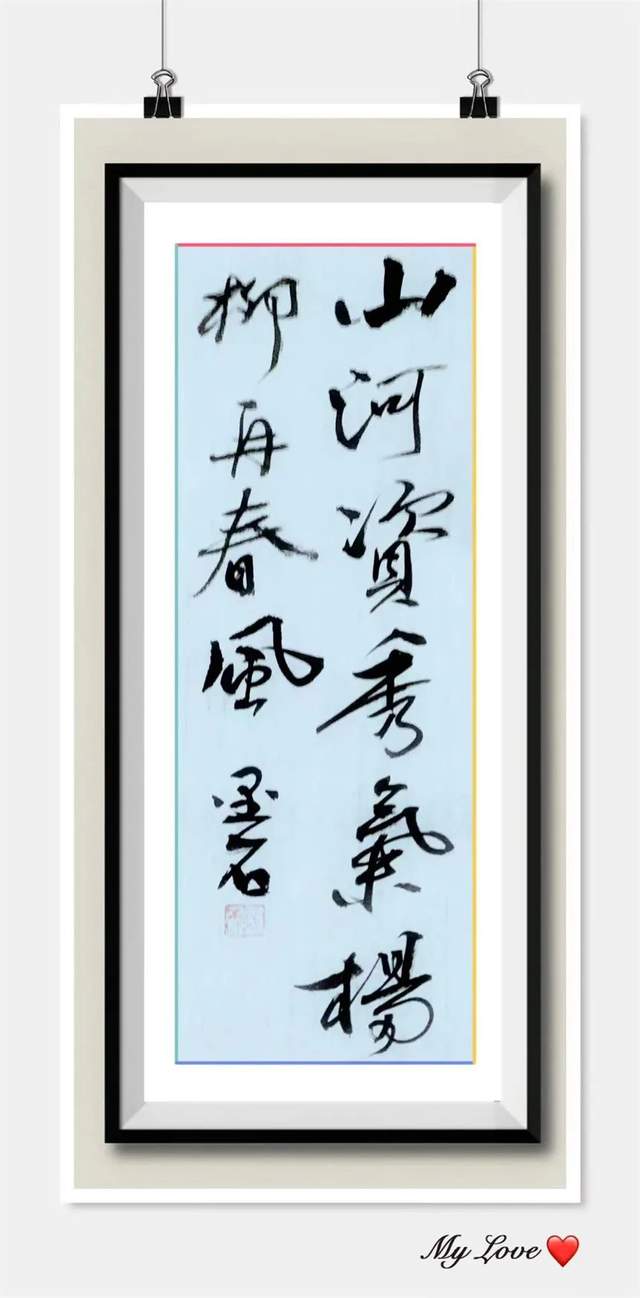 山河資秀氣楊
柳再春風
墨石
My Love